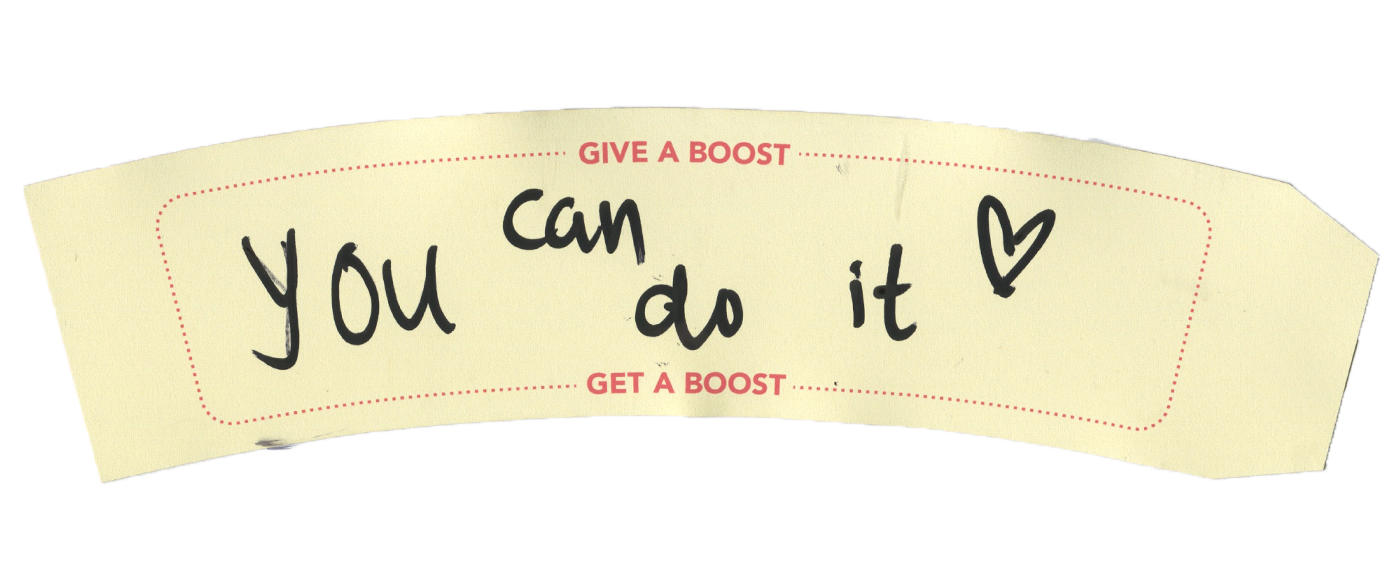 GIVE A BOOST
you can do it
GET A BOOST